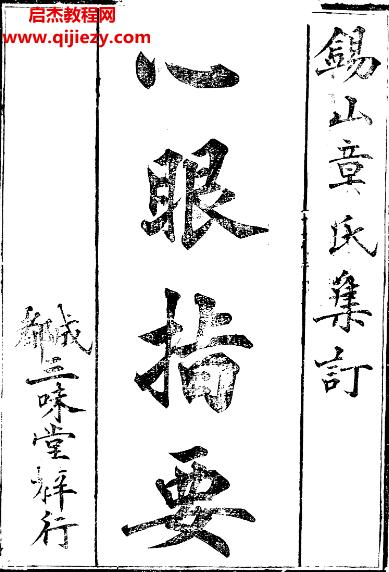 启杰教程网
www.qijiezy.com
錫山章氏集訂
心眼指要
成都三味堂梓行